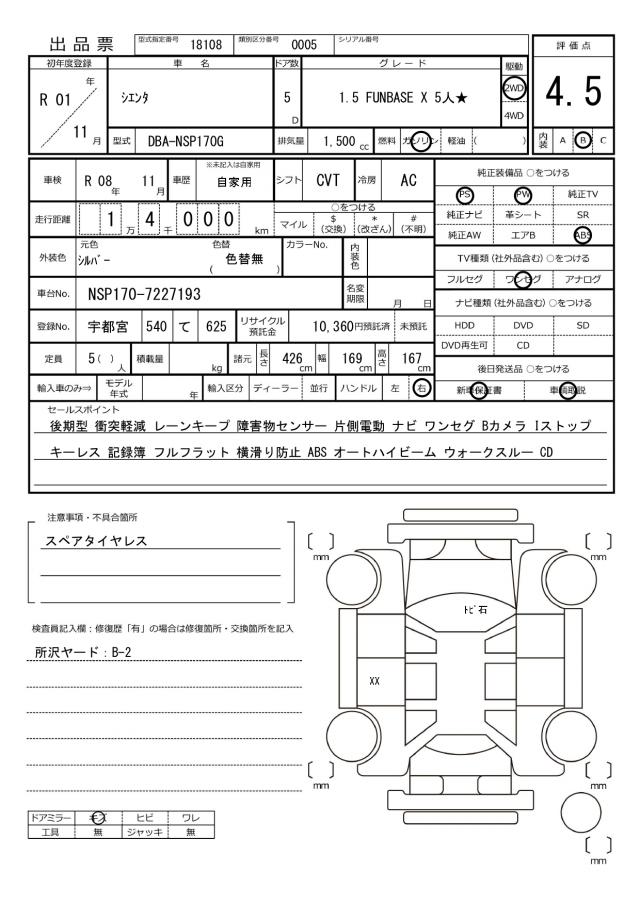 出品票 型式指定番号 18108 類別区分番号 0005 シリアル番号
評価点
4.5
内装 A B C
初年度登録 車名 ドア数 グレード 駆動
R 01 年 11 月
シエンタ 5 D 1.5 FUNBASE X 5人★ 2WD 4WD
型式 DBA-NSP170G 排気量 1,500 cc 燃料 ガソリン 軽油 ( )
車検 R 08 年 11 月 車歴 ※未記入は自家用 自家用 シフト CVT 冷房 AC
走行距離 1 万 4 千 0 0 0 km
○をつける
マイル $(交換) *(改ざん) #(不明)
外装色 元色 シルバー 色替 ( 色替無 ) カラーNo. 内装色
車台No. NSP170-7227193 名変期限 月 日
登録No. 宇都宮 540 て 625 リサイクル預託金 10,360円預託済 未預託
定員 5 ( ) 人 積載量 kg 諸元 長さ 426 cm 幅 169 cm 高さ 167 cm
輸入車のみ⇒ モデル年式 年 輸入区分 ディーラー 並行 ハンドル 左 右
純正装備品 ○をつける
PS PW 純正TV
純正ナビ 革シート SR
純正AW エアB ABS
TV種類 (社外品含む) ○をつける
フルセグ ワンセグ アナログ
ナビ種類 (社外品含む) ○をつける
HDD DVD SD
DVD再生可 CD
後日発送品 ○をつける
新車保証書 車輌取説
セールスポイント
後期型 衝突軽減 レーンキープ 障害物センサー 片側電動 ナビ ワンセグ Bカメラ Iストップ
キーレス 記録簿 フルフラット 横滑り防止 ABS オートハイビーム ウォークスルー CD
注意事項・不具合箇所
スペアタイヤレス
検査員記入欄：修復歴「有」の場合は修復箇所・交換箇所を記入
所沢ヤード：B-2
ドアミラー キズ ヒビ ワレ
工具 無 ジャッキ 無
mm
mm
トビ石
XX
mm
mm
mm